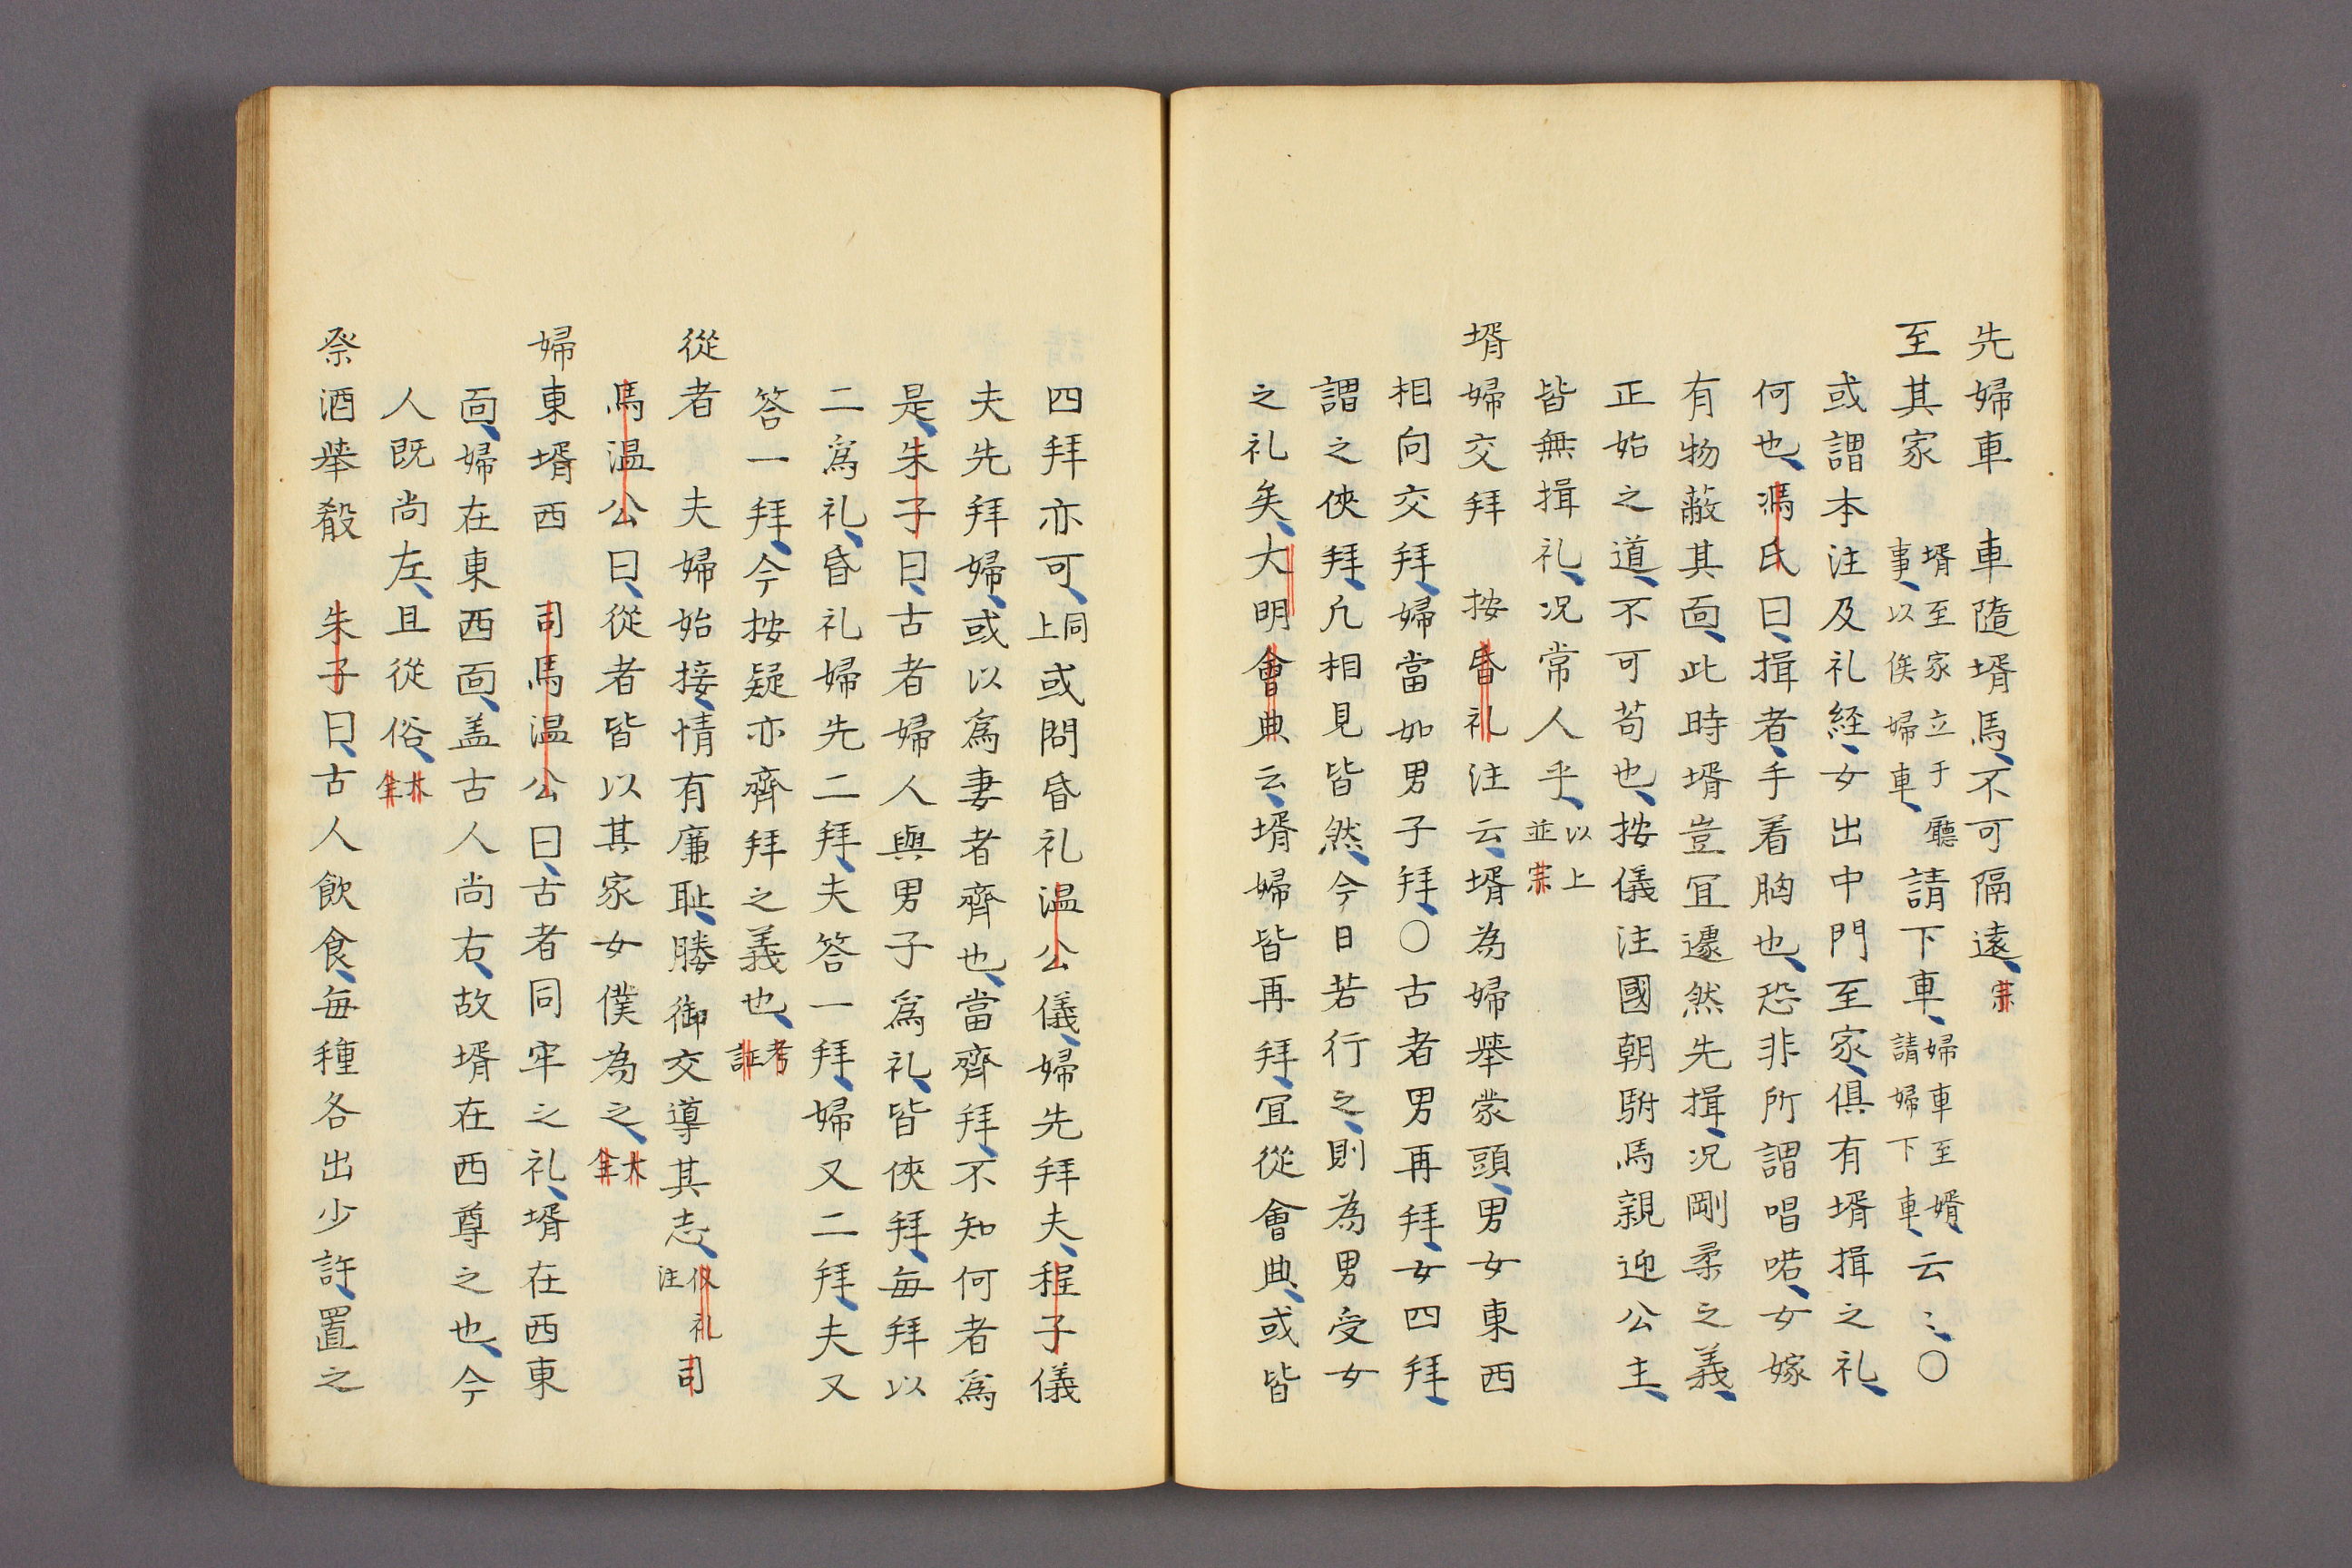 先婦車　車隨壻馬、不可隔遠、宗
至其家　壻至家立于廳事、以俟婦車、請下車、婦車至壻請婦下車、云〻、〇
或謂本注及礼経、女出中門至家、俱有壻揖之礼、
何也、馮氏曰、揖者、手着胸也、恐非所謂唱喏、女嫁
有物蔽其面、此時壻豈冝遽然先揖、況剛柔之義、
正始之道、不可苟也、按儀注國朝駙馬親迎公主、
皆無揖礼、况常人乎、以上並宗
壻婦交拜　按昏礼注云、壻為婦舉蒙頭、男女東西
相向交拜、婦當如男子拜、〇古者男再拜、女四拜、
謂之俠拜、凢相見皆然、今日若行之、則為男受女
之礼矣、大明會典云、壻婦皆再拜、冝從會典、或皆
四拜亦可、同上或問昏礼温公儀、婦先拜夫、程子儀
夫先拜婦、或以爲妻者齊也、當齊拜、不知何者爲
是、朱子曰、古者婦人與男子爲礼、皆俠拜、每拜以
二爲礼、昏礼婦先二拜、夫答一拜、婦又二拜、夫又
答一拜、今按疑亦齊拜之義也、考証
從者　夫婦始接、情有廉耻、媵御交導其志、仪礼注司
馬温公曰、從者皆以其家女僕為之、大全
婦東壻西　司馬温公曰、古者同牢之礼、壻在西東
面、婦在東西面、盖古人尚右、故壻在西尊之也、今
人既尚左、且從俗、大全
祭酒舉殽　朱子曰、古人飲食、每種各出少許、置之